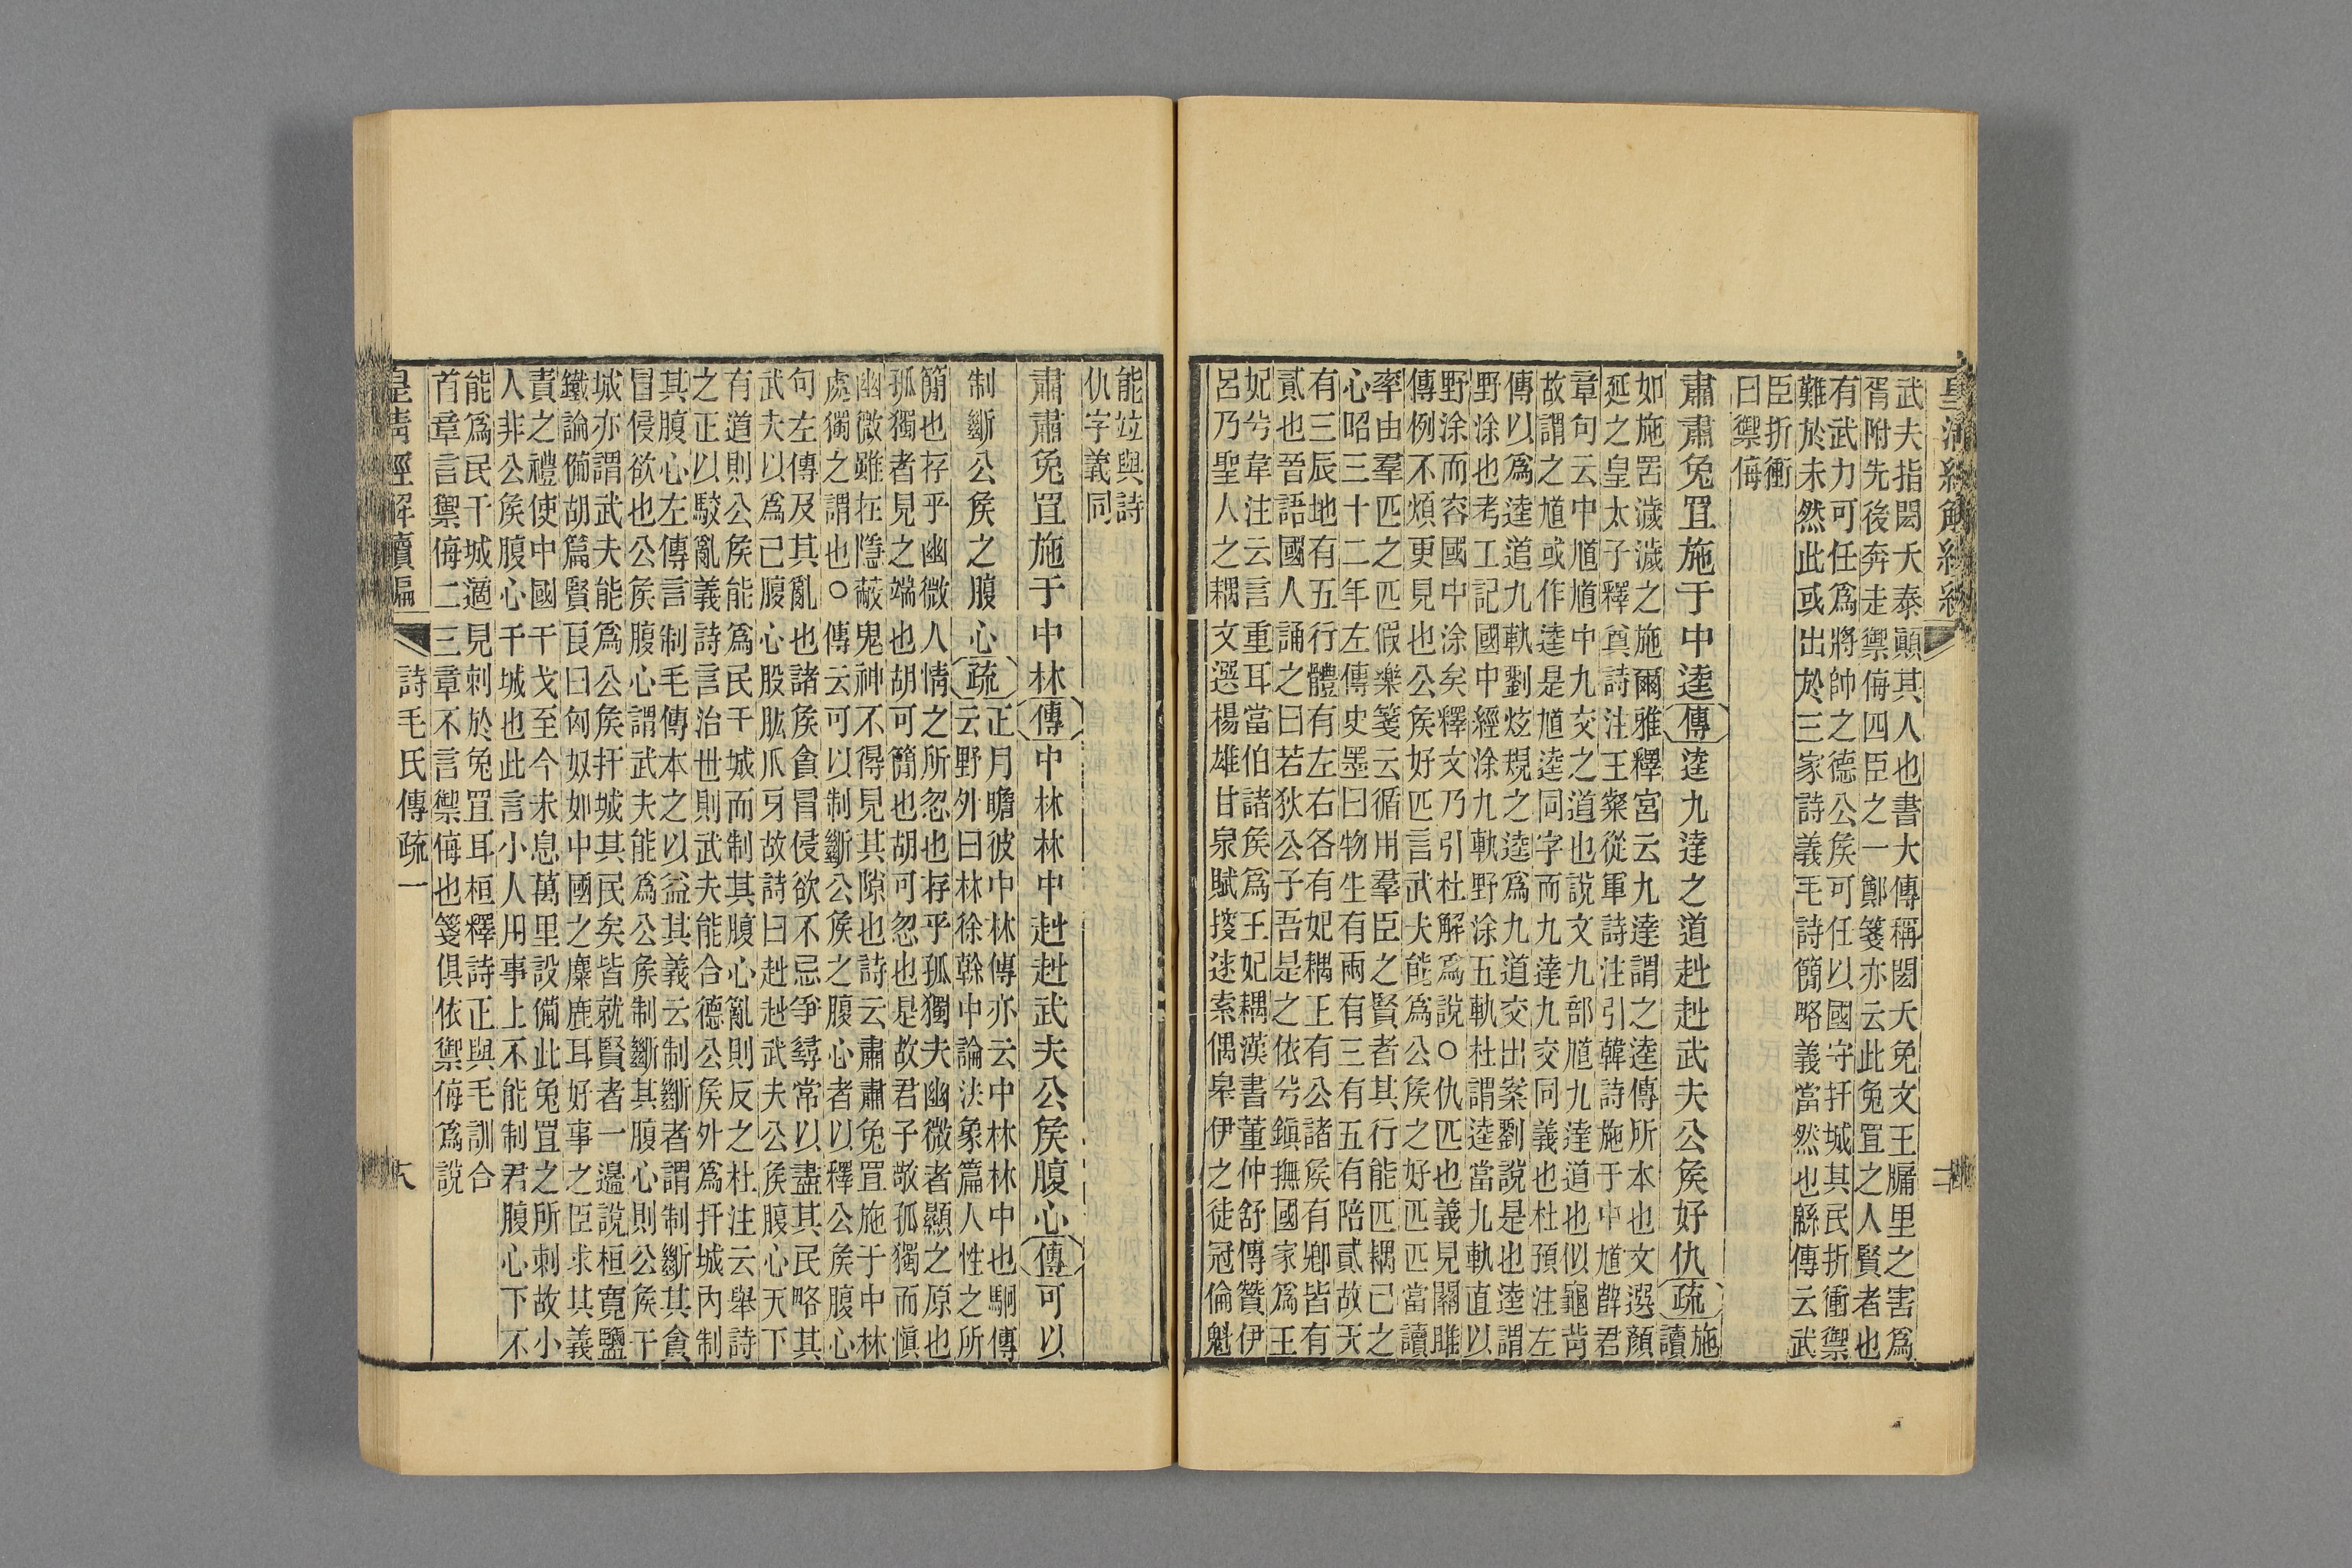 武夫指閎夭泰顛其人也書大傳稱閎夭免文王牖里之害爲
胥附先後奔走禦侮四臣之一鄭箋亦云此兔罝之人賢者也
有武力可任爲將帥之德公矦可任以國守扞城其民折衝禦
難於未然此或出於三家詩義毛詩簡略義當然也緜傳云武
臣折衝
曰禦侮
肅肅兔罝施于中逵傳逵九達之道赳赳武夫公矦好仇疏施
讀
如施罟濊濊之施爾雅釋宮云九達謂之逵傳所本也文選顏
延之皇太子釋奠詩注王粲從軍詩注引韓詩施于中馗薛君
章句云中馗馗中九交之道也說文九部馗九達道也似龜背
故謂之馗或作逵是馗逵同字而九達九交同義也杜預注左
傳以爲逵道九軌劉炫規之逵爲九道交出案劉說是也逵謂
野涂也考工記國中經涂九軌野涂五軌杜謂逵當九軌直以
野涂而容國中涂矣釋文乃引杜解爲說○仇匹也義見關雎
傳例不煩更見也公矦好匹言武夫能爲公矦之好匹匹當讀
率由羣匹之匹假樂箋云循用羣臣之賢者其行能匹耦已之
心昭三十二年左傳史墨曰物生有兩有三有五有陪貳故天
有三辰地有五行體有左右各有妃耦王有公諸矦有卿皆有
貳也晉語國人誦之曰若狄公子吾是之依兮鎮撫國家爲王
妃兮韋注云言重耳當伯諸矦爲王妃耦漢書董仲舒傳贊伊
呂乃聖人之耦文選楊雄甘泉賦搜逑索偶臯伊之徒冠倫魁
能竝與詩
仇字義同
肅肅兔罝施于中林傳中林林中赳赳武夫公矦腹心傳可以
制斷公矦之腹心疏正月瞻彼中林傳亦云中林林中也駉傳
云野外曰林徐幹中論法象篇人性之所
簡也存乎幽微人情之所忽也存乎孤獨夫幽微者顯之原也
孤獨者見之端也胡可簡也胡可忽也是故君子敬孤獨而愼
幽微雖在隱蔽鬼神不得見其隙也詩云肅肅兔罝施于中林
處獨之謂也○傳云可以制斷公矦之腹心者以釋公矦腹心
句左傳及其亂也諸矦貪冒侵欲不忌爭尋常以盡其民略其
武夫以爲己腹心股肱爪牙故詩曰赳赳武夫公矦腹心天下
有道則公矦能爲民干城而制其腹心亂則反之杜注云舉詩
之正以駮亂義詩言治世則武夫能合德公矦外爲扞城內制
其腹心左傳言制毛傳本之以益其義云制斷者謂制斷其貪
冒侵欲也公矦腹心謂武夫能爲公矦制斷其腹心則公矦干
城亦謂武夫能爲公矦扞城其民矣皆就賢者一邊說桓寬鹽
鐵論備胡篇賢良曰匈奴如中國之麋鹿耳好事之臣求其義
責之禮使中國干戈至今未息萬里設備此兔罝之所刺故小
人非公矦腹心干城也此言小人用事上不能制君腹心下不
能爲民干城適見刺於兔罝耳桓釋詩正與毛訓合
首章言禦侮二三章不言禦侮也箋俱依禦侮爲說
皇清經解續編 詩毛氏傳疏一